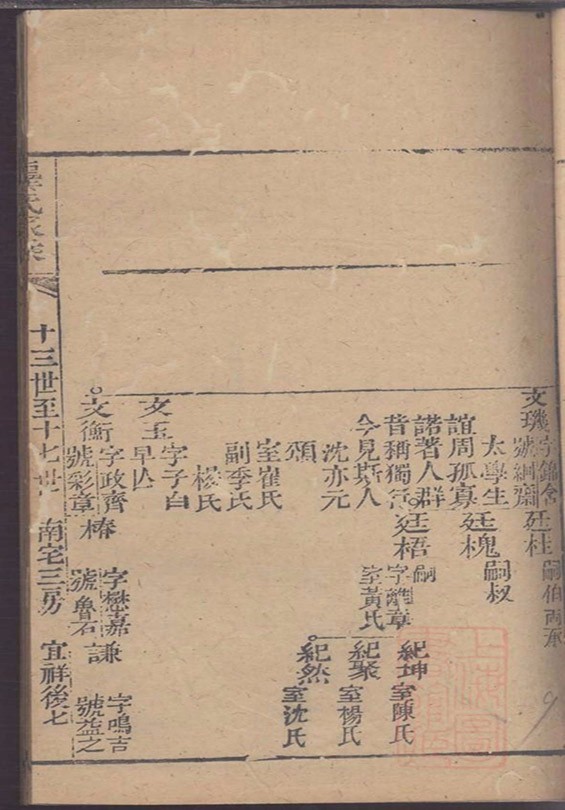 文璣 字錦含 廷桂 嗣伯兩承
號絅齋
太學生 廷槐 嗣叔
誼周孤寡
諾著人群 廷梧 嗣 紀坤 室陳氏
昔稱獨行 字雝章
今見斯人 室黃氏 紀聚 室楊氏
沈亦元 紀然 室沈氏
頌
室崔氏
副季氏
楊氏
文玉 字子白
早亾
文衡 字政齊 椿 字懋嘉 謙 字鳴吉
號彩章 號魯石 號益之
氏家
十三世至十七世 南宅三房 宜祥後七